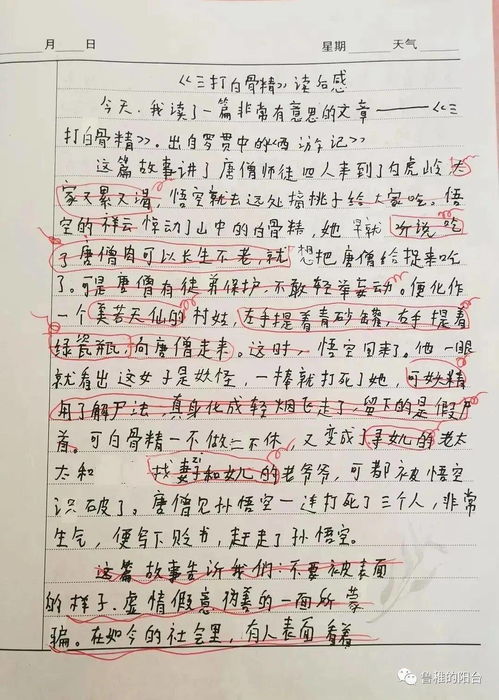 月 日 星期 天气
《三打白骨精》读后感
今天,我读了一篇非常有意思的文章——《三
打白骨精》。出自罗贯中的《西游记》
这篇故事讲了唐僧师徒四人来到了白虎岭,大
家又累又渴,悟空就去远处摘桃子给大家吃。悟
空的祥云惊动了山中的白骨精,她早就听说吃
了唐僧肉可以长生不老,就想把唐僧给捉来吃
了。可是唐僧有徒弟保护,不敢轻举妄动。便化作
一个美若天仙的村姑,左手提着青砂罐,右手提着
绿瓷瓶,向唐僧走来。这时,悟空回来了。他一眼
就看出这女子是妖怪,一棒就打死了她,可妖精
用了解尸法,真身化成轻烟飞走了,留下的是假尸
首。可白骨精一不做二不休,又变成了寻女儿的老太
太和 找妻子和女儿的老爷爷,可都被悟空
识破了。唐僧见孙悟空一连打死了三个人,非常
生气,便写下贬书,赶走了孙悟空。
这篇故事告诉我们:不要被表面
的样子、虚情假意伪善的一面所蒙
骗。在如今的社会里,有人表面看着
鲁稚的阳台